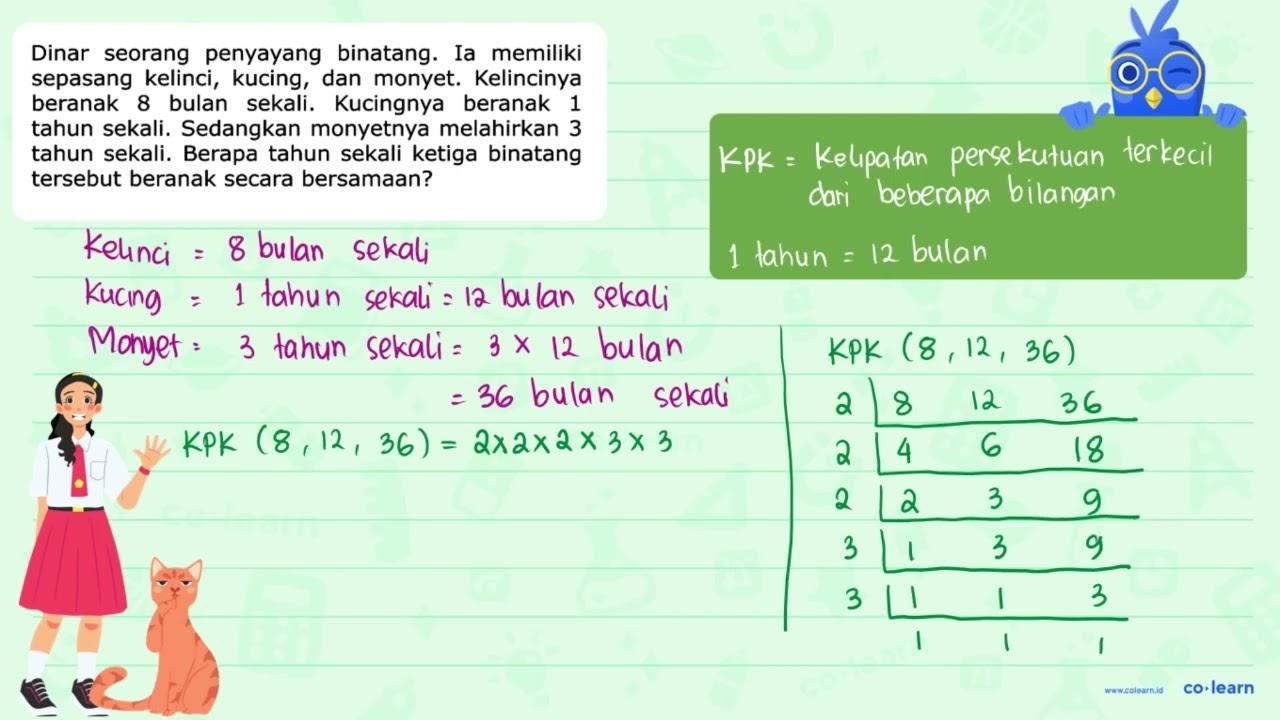 Dinar seorang penyayang binatang. Ia memiliki
sepasang kelinci, kucing, dan monyet. Kelincinya
beranak 8 bulan sekali. Kucingnya beranak 1
tahun sekali. Sedangkan monyetnya melahirkan 3
tahun sekali. Berapa tahun sekali ketiga binatang
tersebut beranak secara bersamaan?
KPK = Kelipatan persekutuan terkecil
dari beberapa bilangan
1 tahun = 12 bulan
Kelinci = 8 bulan sekali
Kucing = 1 tahun sekali = 12 bulan sekali
Monyet = 3 tahun sekali = 3 × 12 bulan
= 36 bulan sekali
KPK (8, 12, 36) = 2×2×2×3×3
KPK (8, 12, 36)
2 8 12 36
2 4 6 18
2 2 3 9
3 1 3 9
3 1 1 3
1 1 1
co·learn
co·learn
www.colearn.id co·learn